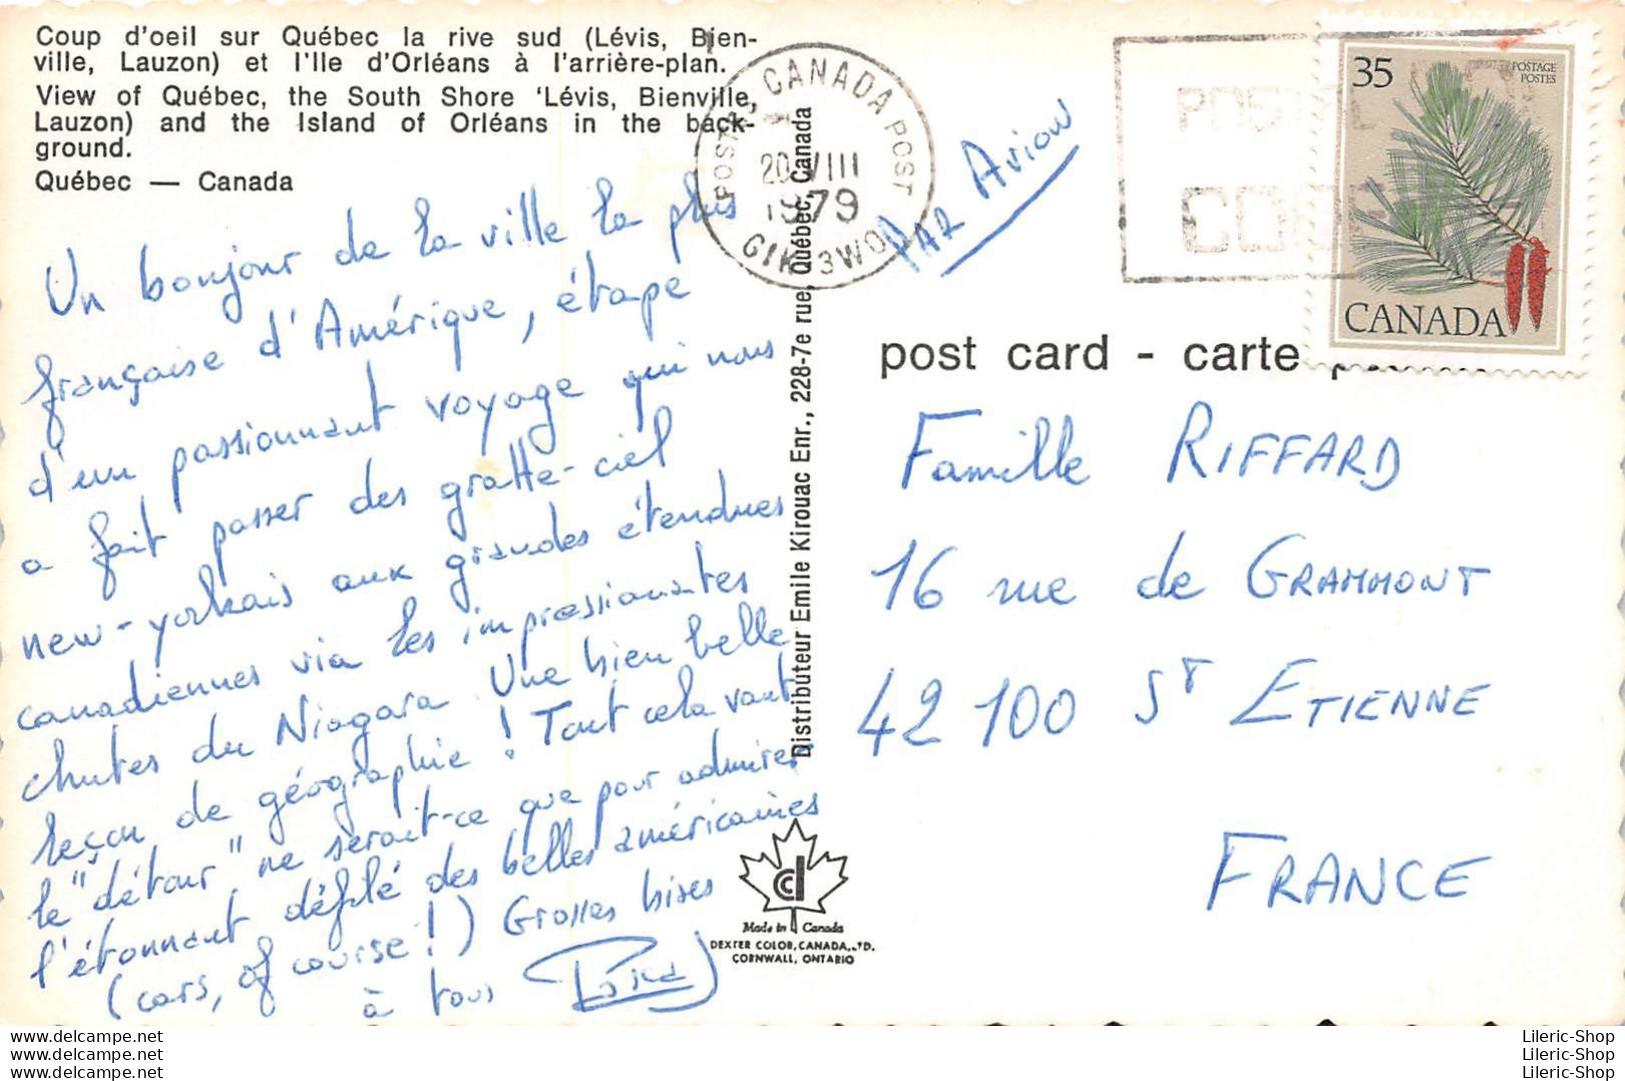 Coup d'oeil sur Québec la rive sud (Lévis, Bien-
ville, Lauzon) et l'Ile d'Orléans à l'arrière-plan.
View of Québec, the South Shore 'Lévis, Bienville,
Lauzon) and the Island of Orléans in the back-
ground.
Québec — Canada
Un bonjour de la ville la plus
française d'Amérique, étape
d'un passionnant voyage qui nous
a fait passer des gratte-ciel
new-yorkais aux grandes étendues
canadiennes via les impressionnantes
chutes du Niagara. Une bien belle
leçon de géographie ! Tout cela vaut
le "détour" ne serait-ce que pour admirer
l'étonnant défilé des belles américaines
(cars, of course !) Grosses bises
à tous
Distributeur Emile Kirouac Enr., 228-7e rue, Québec, Canada
POSTES CANADA POST
20 VIII
1979
G1K 3W0
PAR AVION
POSTAL
CODE
35
POSTAGE
POSTES
CANADA
post card - carte
Famille RIFFARD
16 rue de GRAMMONT
42100 ST ETIENNE
FRANCE
Made in Canada
DEXTER COLOR, CANADA, LTD.
CORNWALL, ONTARIO
Lileric-Shop.com
Lileric-Shop.com
Lileric-Shop.com
Lileric-Shop
Lileric-Shop
Lileric-Shop